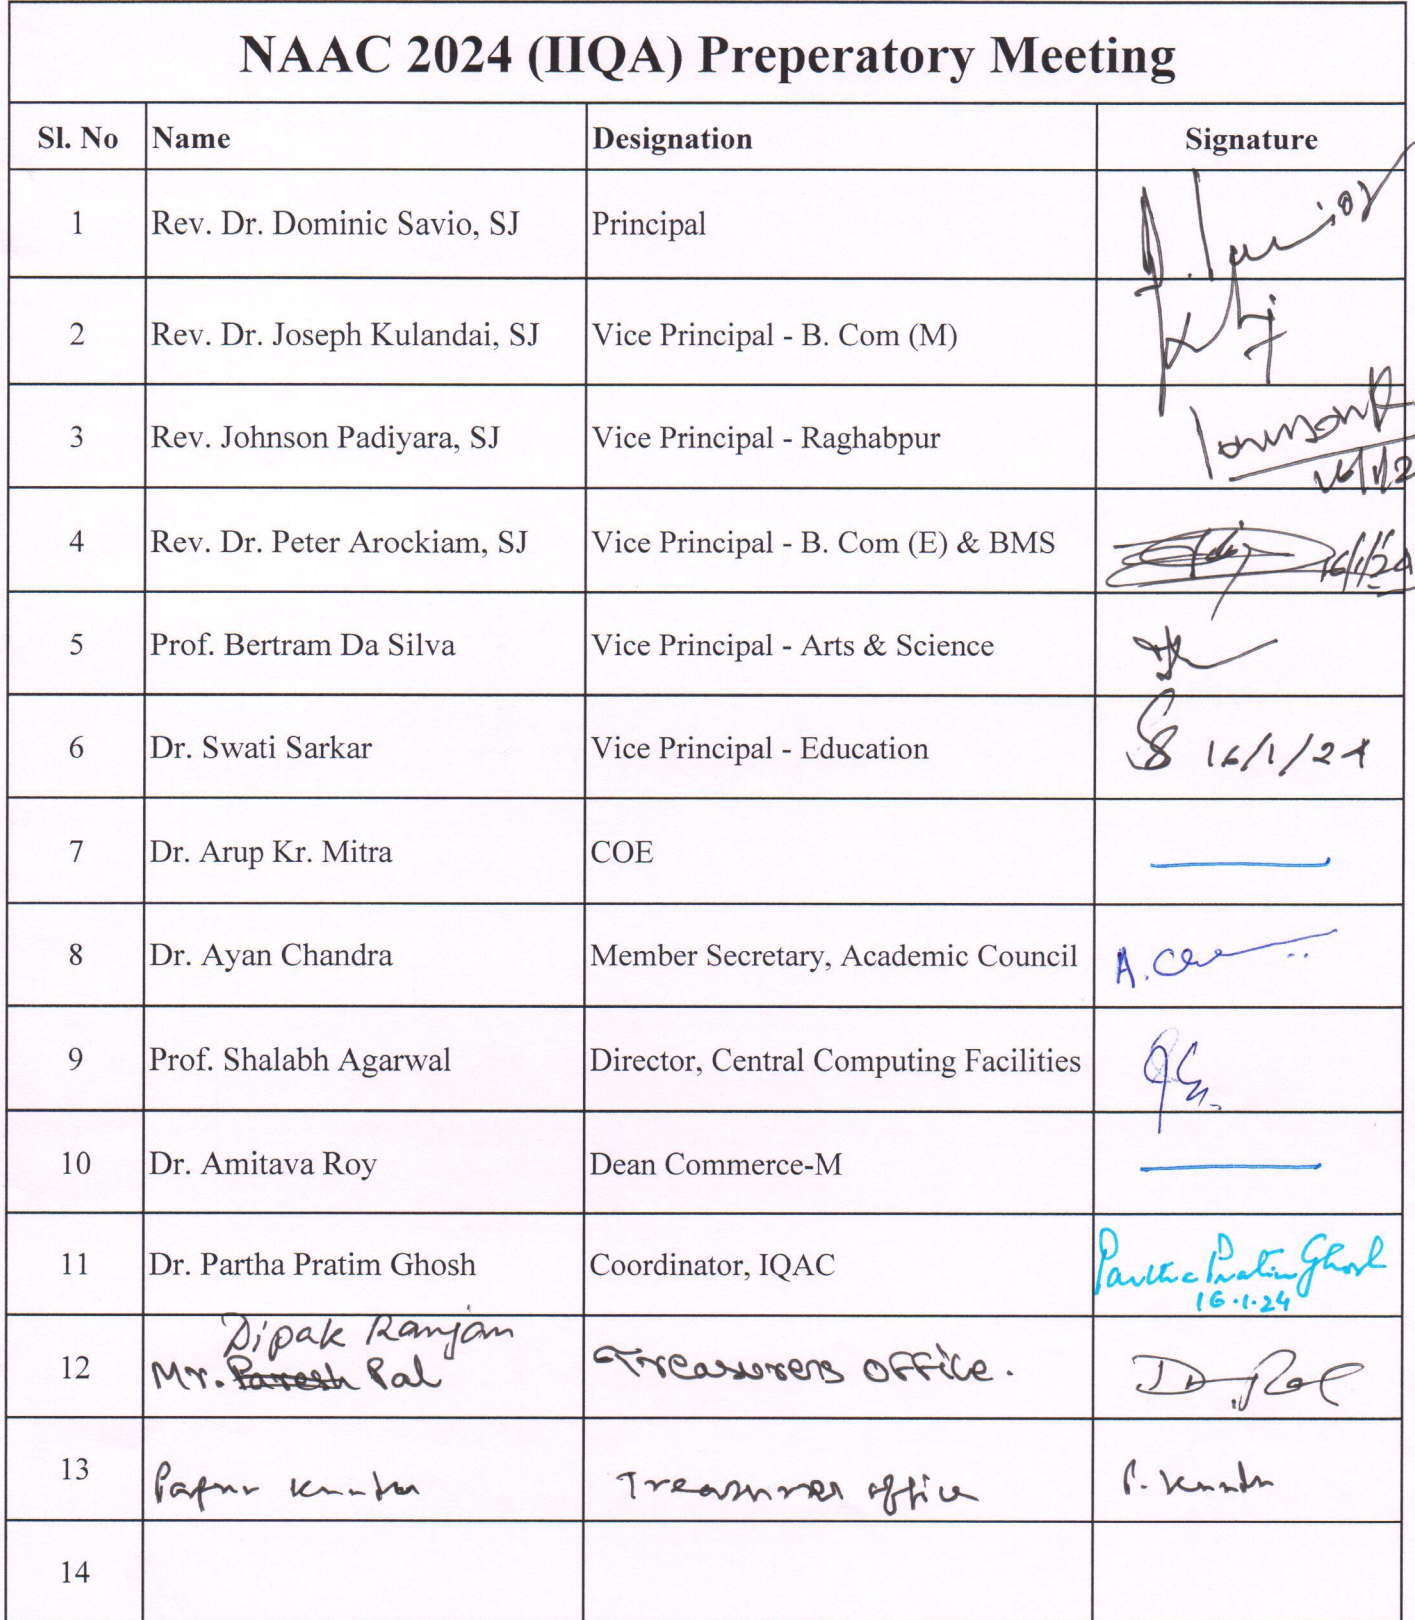 NAAC 2024 (IIQA) Preperatory Meeting
Sl. No Name Designation Signature
1 Rev. Dr. Dominic Savio, SJ Principal
2 Rev. Dr. Joseph Kulandai, SJ Vice Principal - B. Com (M)
3 Rev. Johnson Padiyara, SJ Vice Principal - Raghabpur
16/1/2
4 Rev. Dr. Peter Arockiam, SJ Vice Principal - B. Com (E) & BMS 16/1/24
5 Prof. Bertram Da Silva Vice Principal - Arts & Science
6 Dr. Swati Sarkar Vice Principal - Education 16/1/24
7 Dr. Arup Kr. Mitra COE
8 Dr. Ayan Chandra Member Secretary, Academic Council A.
9 Prof. Shalabh Agarwal Director, Central Computing Facilities
10 Dr. Amitava Roy Dean Commerce-M
11 Dr. Partha Pratim Ghosh Coordinator, IQAC Partha Pratim Ghosh
16.1.24
Dipak Ranjan
12 Mr. Paresh Pal Treasurers office.
13 Kundu Treasurer office P. Kundu
14